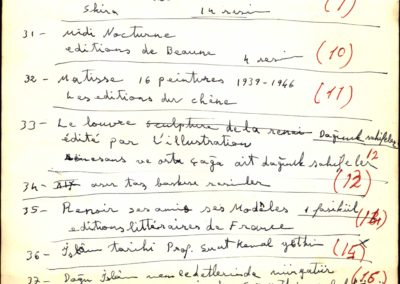 Skira 14 resim (7)
31 - Midi Nocturne
editions de Beaune 4 resim (10)
32 - Matisse 16 peintures 1939-1946
Les editions du chêne (11)
33 - Le louvre sculpture de la renai Dağınık sahifeler
édité par L'illustration
ve orta çağa ait dağınık sahifeler 12
34 - XIX asır taş baskısı resimler (12)
35 - Renoir ses amis ses Modèles 1 fasikül
editions littéraires de France
36 - İslâm tarihi Prof. Suut Kemal (15)
37 - Doğu İslâm (16)